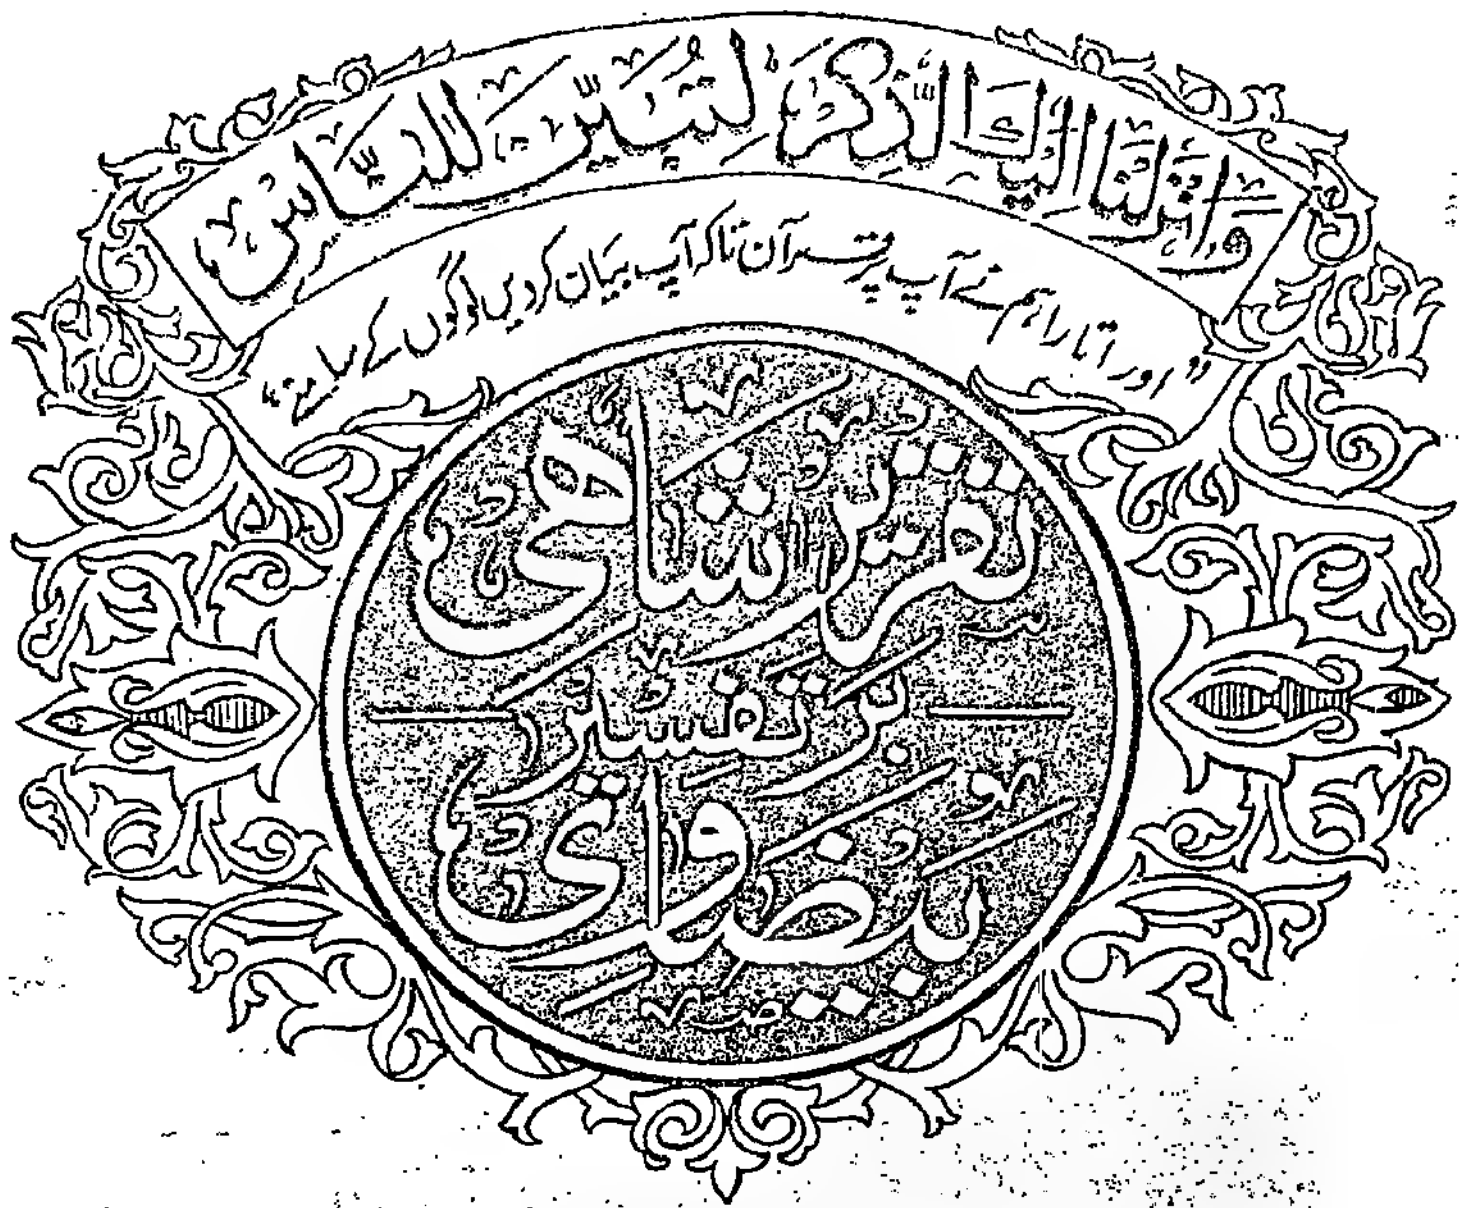 وَاَنْزَلْنَا اِلَيْكَ الذِّكْرَ لِتُبَيِّنَ لِلنَّاسِ
”اور اتارا ہم نے آپ پر قرآن تاکہ آپ بیان کردیں لوگوں کے سامنے“
تقریر شاہی
بر تفسیر
بیضاوی